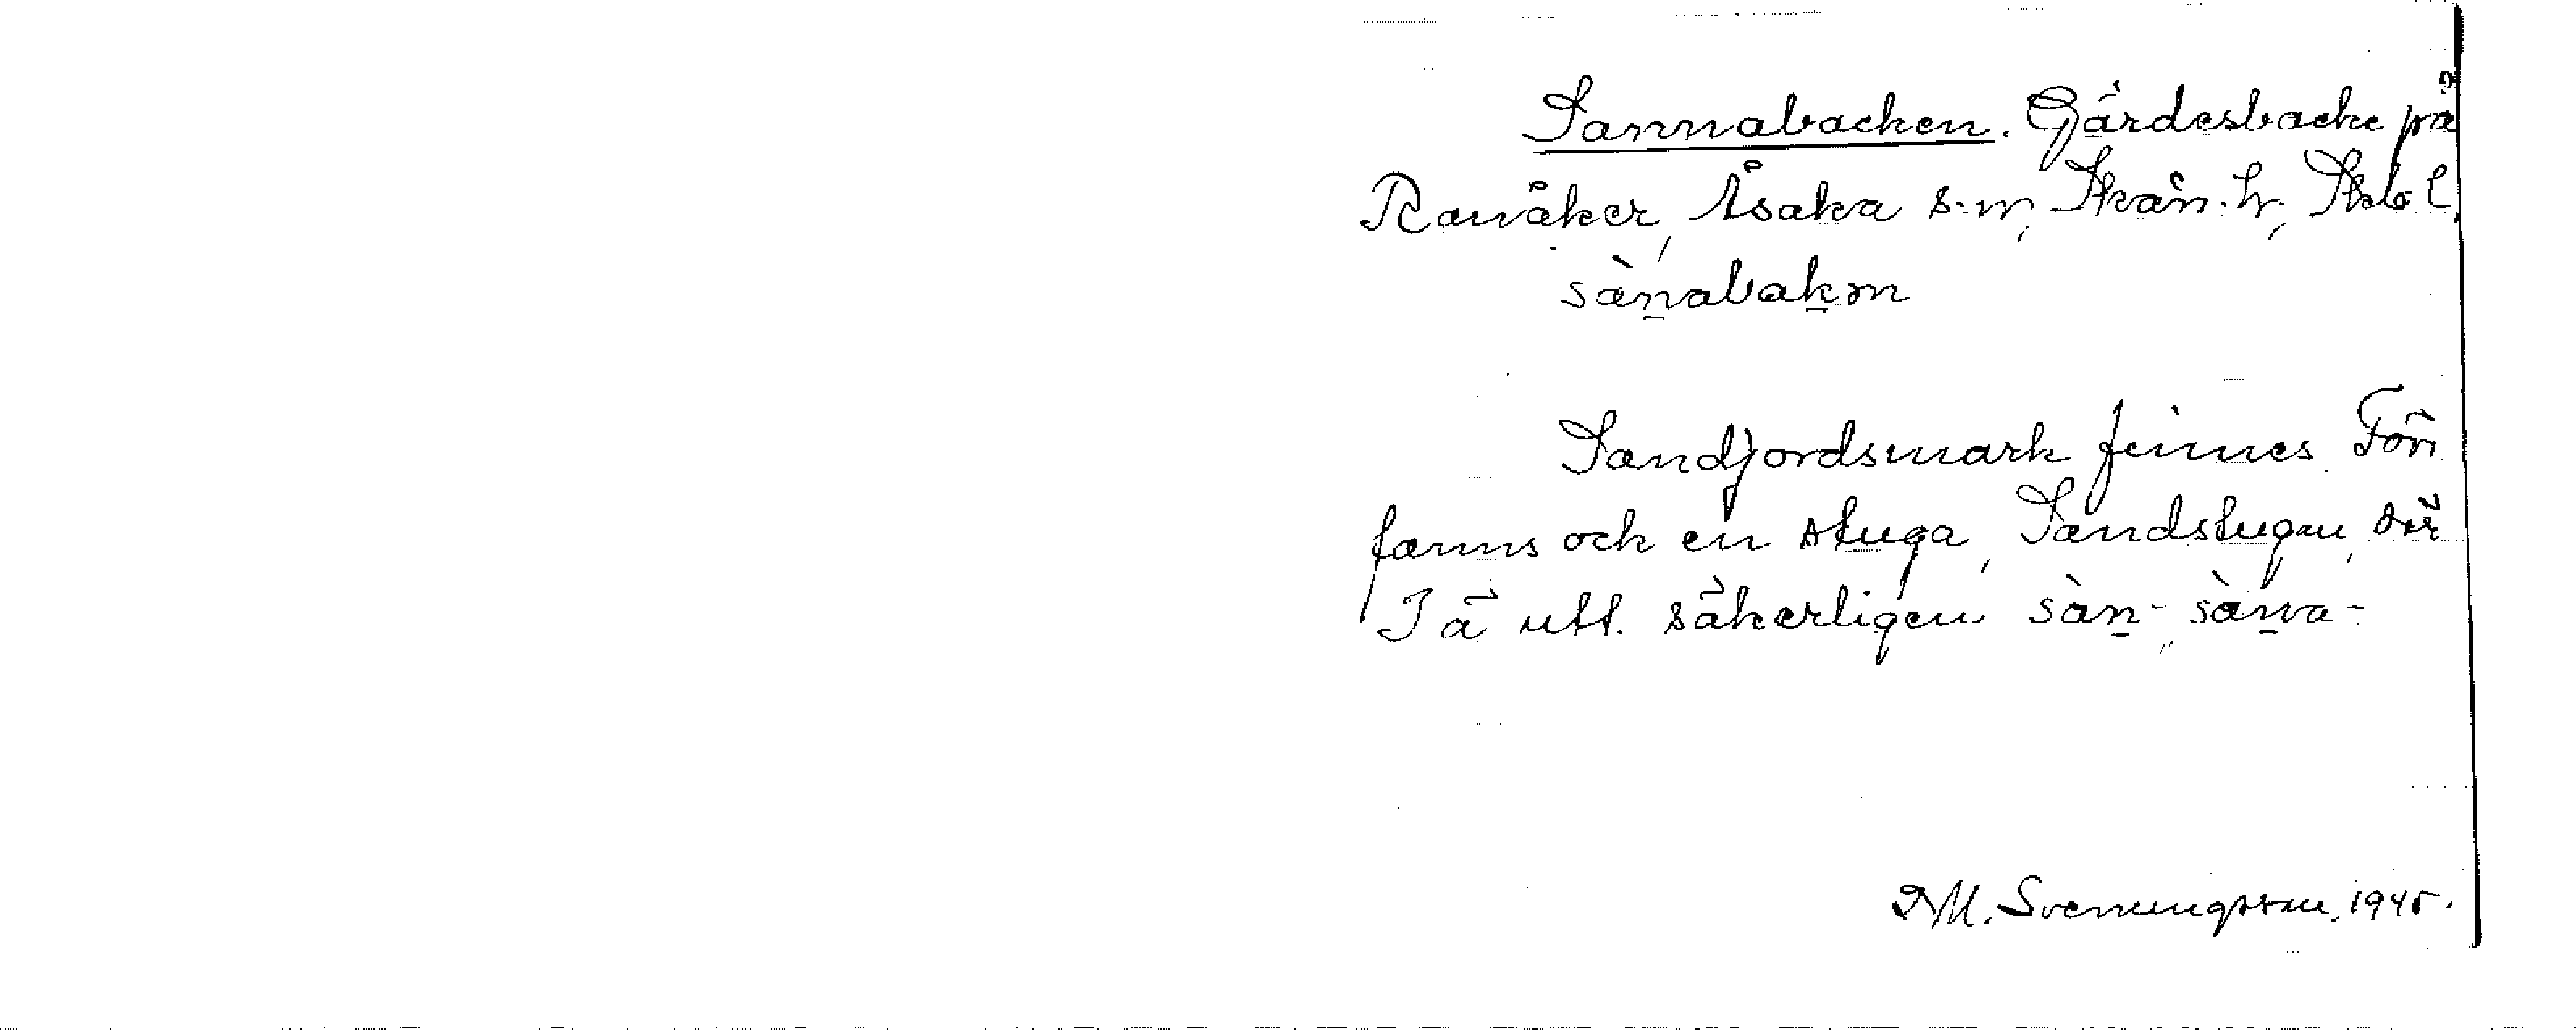 Sannabacken. Gärdesbacke på
Ranåker, Åsaka s-n, Skån. h, Skb l.
sànabakən
Sandjordsmark finnes. Förr
fanns ock en stuga, Sandstugan, där
J ä utt. säkerligen sàn-, sàna-
M. Svenungsson, 1945.